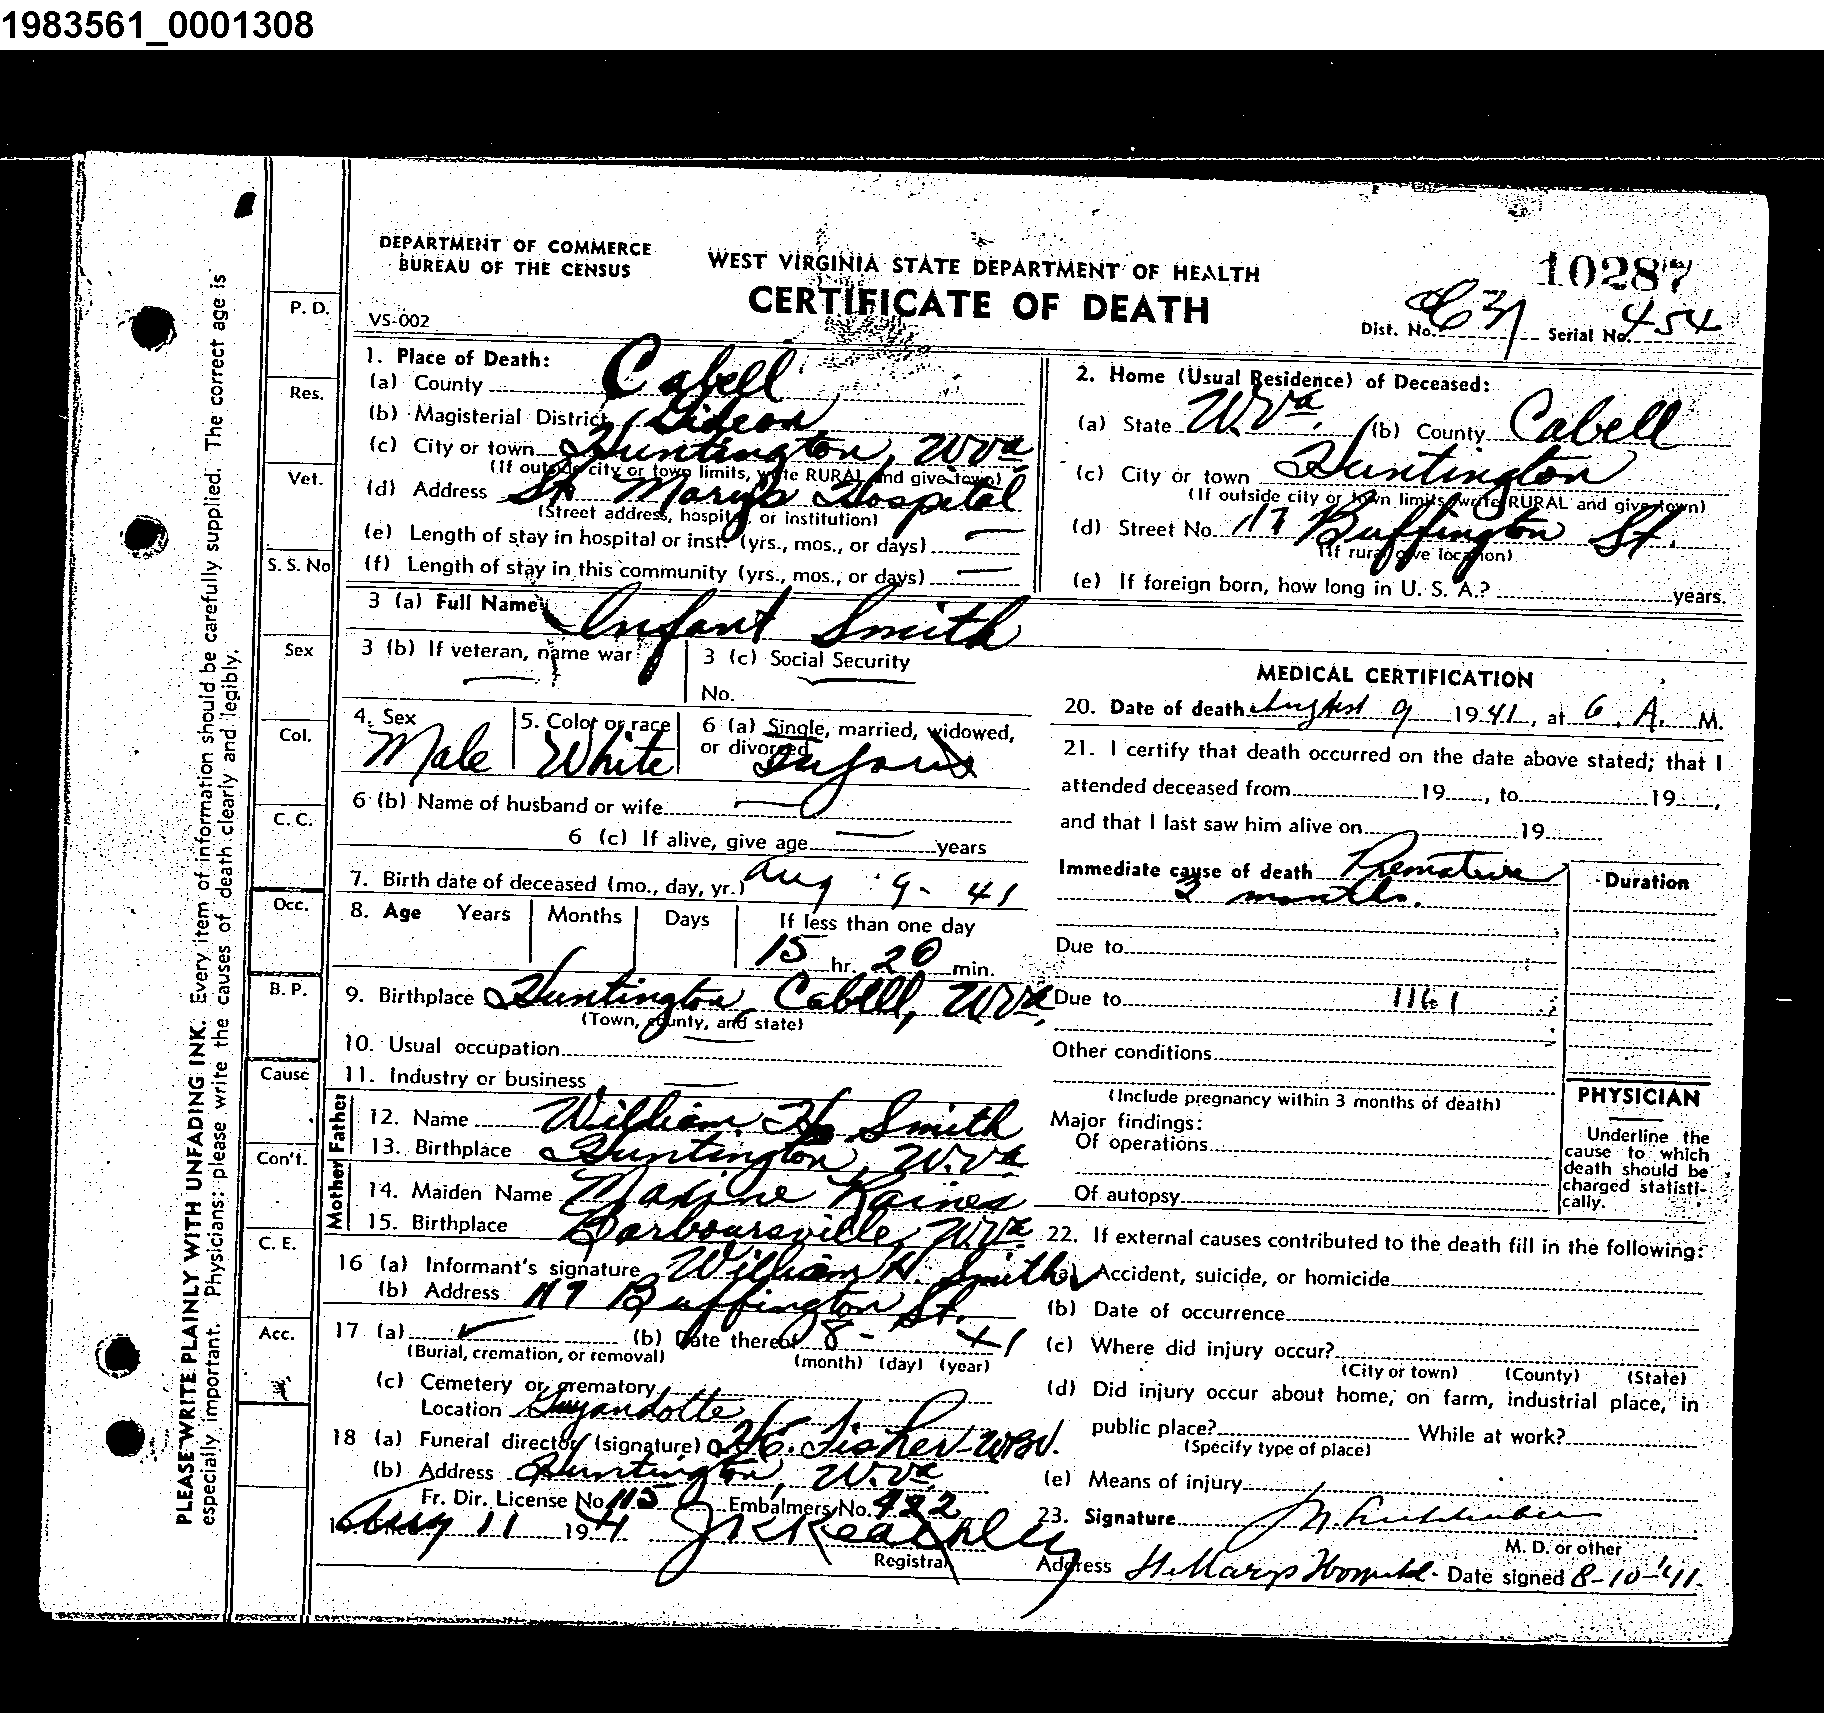 1983561_0001308
DEPARTMENT OF COMMERCE
BUREAU OF THE CENSUS
VS-002
WEST VIRGINIA STATE DEPARTMENT OF HEALTH
CERTIFICATE OF DEATH
10287
Dist. No. Serial No. 454
PLEASE WRITE PLAINLY WITH UNFADING INK. Every item of information should be carefully supplied. The correct age is
especially important. Physicians: please write the causes of death clearly and legibly.
P. D.
Res.
Vet.
S. S. No
Sex
Col.
C. C.
Occ.
B. P.
Cause
Con't.
C. E.
Acc.
1. Place of Death:
(a) County Cabell
(b) Magisterial District Gideon
(c) City or town Huntington, W Va
(If outside city or town limits, write RURAL and give town)
(d) Address St Mary's Hospital
(Street address, hospital, or institution)
(e) Length of stay in hospital or inst. (yrs., mos., or days) —
(f) Length of stay in this community (yrs., mos., or days) —
2. Home (Usual Residence) of Deceased:
(a) State W. Va. (b) County Cabell
(c) City or town Huntington
(If outside city or town limits, write RURAL and give town)
(d) Street No. 117 Buffington St.
(If rural give location)
(e) If foreign born, how long in U. S. A.? years.
3 (a) Full Name Infant Smith
3 (b) If veteran, name war —
3 (c) Social Security
No. —
4. Sex Male
5. Color or race White
6 (a) Single, married, widowed,
or divorced Infant
6 (b) Name of husband or wife —
6 (c) If alive, give age — years
7. Birth date of deceased (mo., day, yr.) Aug 9 - 41
8. Age Years Months Days If less than one day
15 hr. 20 min.
9. Birthplace Huntington, Cabell, W Va.
(Town, county, and state)
10. Usual occupation —
11. Industry or business —
Father
12. Name William H. Smith
13. Birthplace Huntington, W. Va
Mother
14. Maiden Name Maxine Raines
15. Birthplace Barboursville, W. Va.
16 (a) Informant's signature William H. Smith
(b) Address 117 Buffington St.
17 (a) ✓ (b) Date thereof 8 - 41
(Burial, cremation, or removal) (month) (day) (year)
(c) Cemetery or crematory
Location Guyandotte
18 (a) Funeral director (signature) Fisher
(b) Address Huntington, W. Va.
Fr. Dir. License No. 115 Embalmers No. 422
Aug 11 1941
Registrar
MEDICAL CERTIFICATION
20. Date of death August 9 1941, at 6 A. M.
21. I certify that death occurred on the date above stated; that I
attended deceased from 19 , to 19 ,
and that I last saw him alive on 19
Immediate cause of death Premature
months.
Duration
Due to
Due to 1161
Other conditions
(Include pregnancy within 3 months of death)
Major findings:
Of operations
Of autopsy
PHYSICIAN
Underline the
cause to which
death should be
charged statisti-
cally.
22. If external causes contributed to the death fill in the following:
(a) Accident, suicide, or homicide
(b) Date of occurrence
(c) Where did injury occur?
(City or town) (County) (State)
(d) Did injury occur about home, on farm, industrial place, in
public place? While at work?
(Specify type of place)
(e) Means of injury
23. Signature
M. D. or other
Address St Marys Hospital. Date signed 8-10-'41.